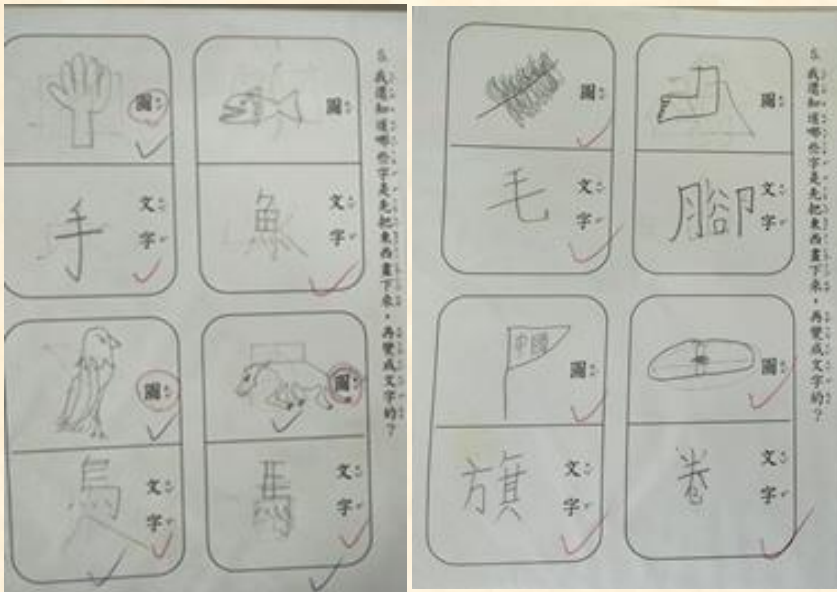 5. 我還知道哪些字是先把東西畫下來，再變成文字的？
圖
文字
魚
圖
文字
手
圖
文字
馬
圖
文字
鳥
5. 我還知道哪些字是先把東西畫下來，再變成文字的？
圖
文字
腳
圖
文字
毛
圖
文字
卷
中國
圖
文字
旗